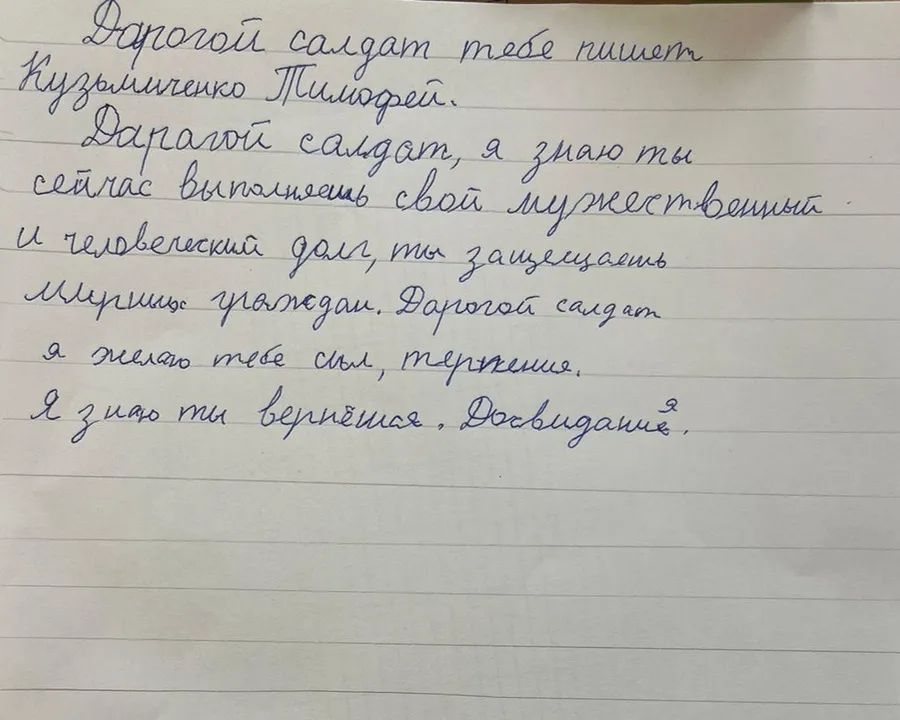 Дарогой салдат тебе пишет
Кузьмиченко Тимофей.
Дарагой салдат, я знаю ты
сейчас выполняешь свой мужественный
и человеческий долг, ты защещаешь
мирных граждан. Дарогой салдат
я желаю тебе сил, терпжения.
Я знаю ты вернёшся. Досвидание я.